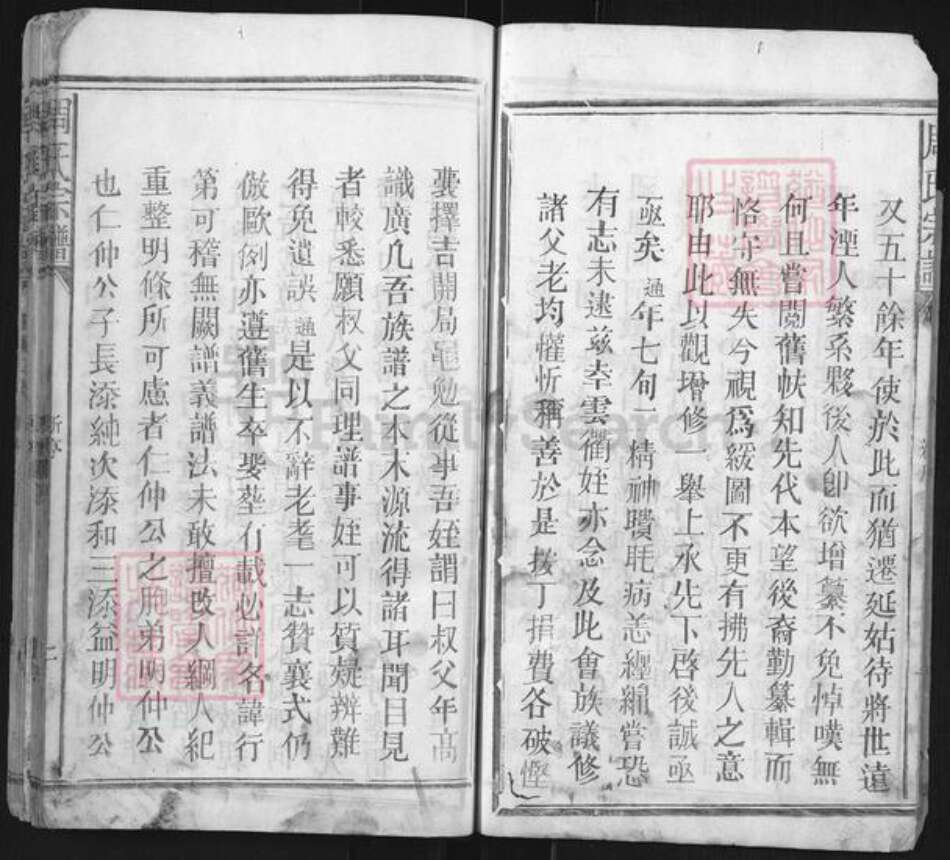 又五十餘年使於此而猶遷延姑待將世遠
年湮人繁系夥後人卽欲增纂不免悼嘆無
何且嘗閱舊帙知先代本望後裔勤纂輯而
恪守無失今視爲緩圖不更有拂先人之意
耶由此以觀增修一舉上承先下啓後誠亟
亟矣通年七旬一精神聵眊病恙纏綿嘗恐
有志未逮茲幸雲衢姪亦念及此會族議修
諸父老均懽忻稱善於是按丁捐費各破慳
囊擇吉開局黽勉從事吾姪謂曰叔父年高
識廣凡吾族譜之本木源流得諸耳聞目見
者較悉願叔父同理譜事姪可以質疑辨難
得免遺誤通是以不辭老耄一志贊襄式仍
倣歐例亦遵舊生卒娶塟有載必詳名諱行
第可稽無闕譜義譜法未敢擅改人綱人紀
重整明條所可慮者仁仲公之胞弟明仲公
也仁仲公子長添純次添和三添益明仲公
周氏宗譜
周氏宗譜
FamilySearch